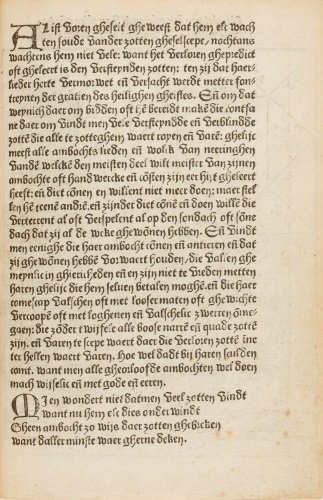 Al ist voren gheseit gheweest dat hem elc wach
ten soude vander zotten gheselscepe, nochtans
wachtens hem niet vele: want het verloren ghepredict
oft gheleert is den versteynden zotten: ten zij dat haer-
lieder herte vermorwet en versacht werdt metter fon-
teynen der gratien des heilighen gheestes. En om dat
weynich daer om bidden oft ... bereidt makē die
daer om vindt men vele versteynde en verblindde
zottē die alle te zotteghem waert royen en varē: ghelijc
meest alle ambochts lieden en volck van neeringhen
vandē welckē den meesten deel wilt meister van zijnen
ambochte oft handwercke en cōsten zijn eer hijt gheleert
heeft: en diet cōnen en willent niet meer doen: maer stel
len hē teenē andrē, en zijnder diet cōnē en doen willē die
verterent al oft verspelent al op den sondach oft sōne
dach dat zij al de weke ghewōnen hebben. En vindt
men eenighe die haer ambocht cōnen en antieren en dat
zij ghewōnen hebbē voorwaert houden, die vallen ghe
meynlic in ghiericheden en en zijn niet te vreden metten
haren ghelijc die hem seluen betalen moghē, en die haer
comescap valschen oft met looser maten oft ghewichte
vercoopē oft met loghenen en valschelic zweeren ōme-
gaen: die zōder twijfele alle boose narrē en quade zottē
zijn. en varen te scepe waert daer die verloren zottē in-
ter hellen waert varen. Hoe wel dadt bij haren sculden
comt. want men alle gheoloofde ambochten wel doen
mach wijselic en met gode en eeren.
Mien wondert niet datmen veel zotten vindt
want nu hem elc dies onderwindt
Gheen ambocht zo wijs daer zotten ghebicken
want daller minste waer gherne deken.